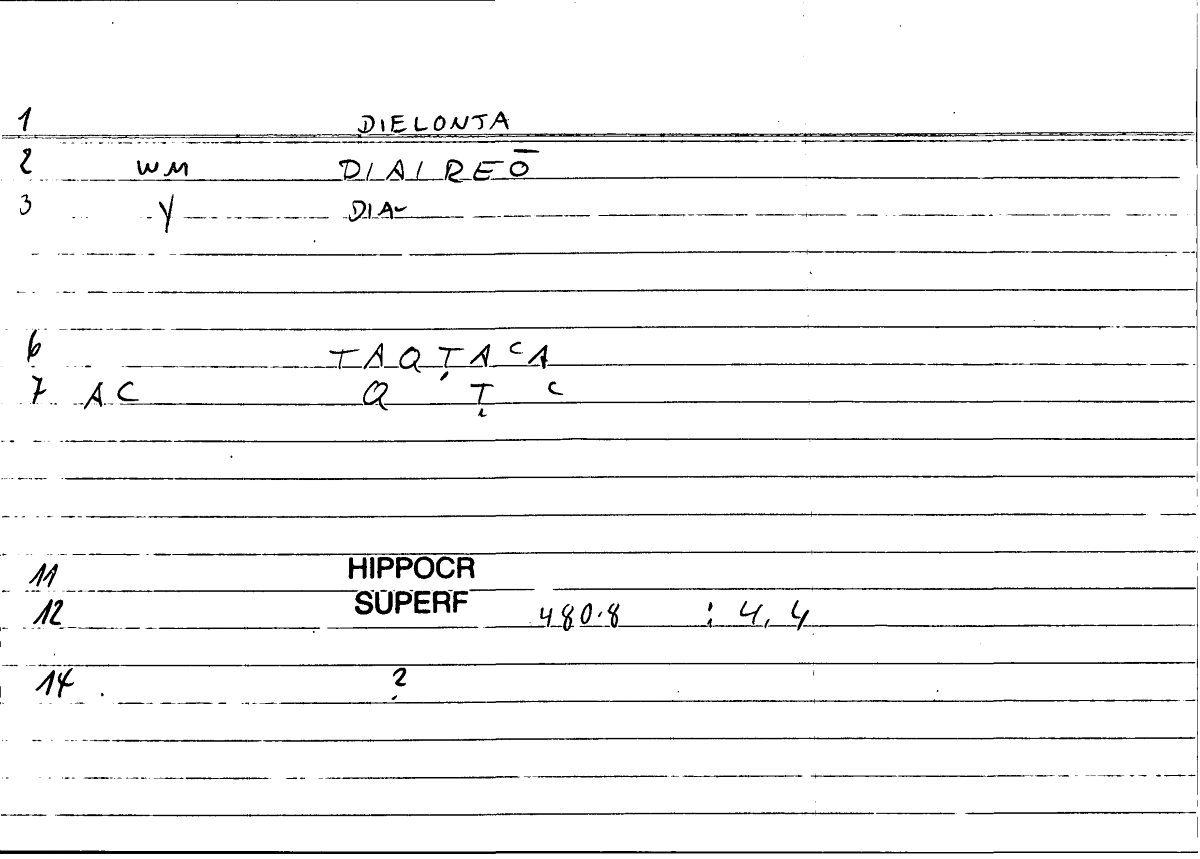 1 DIELONTA
2 WM DIAIREŌ
3 Y DIA-
6 TAQṬAᶜA
7 AC Q Ṭ ᶜ
11 HIPPOCR
12 SUPERF 480.8 : 4,4
14 ?